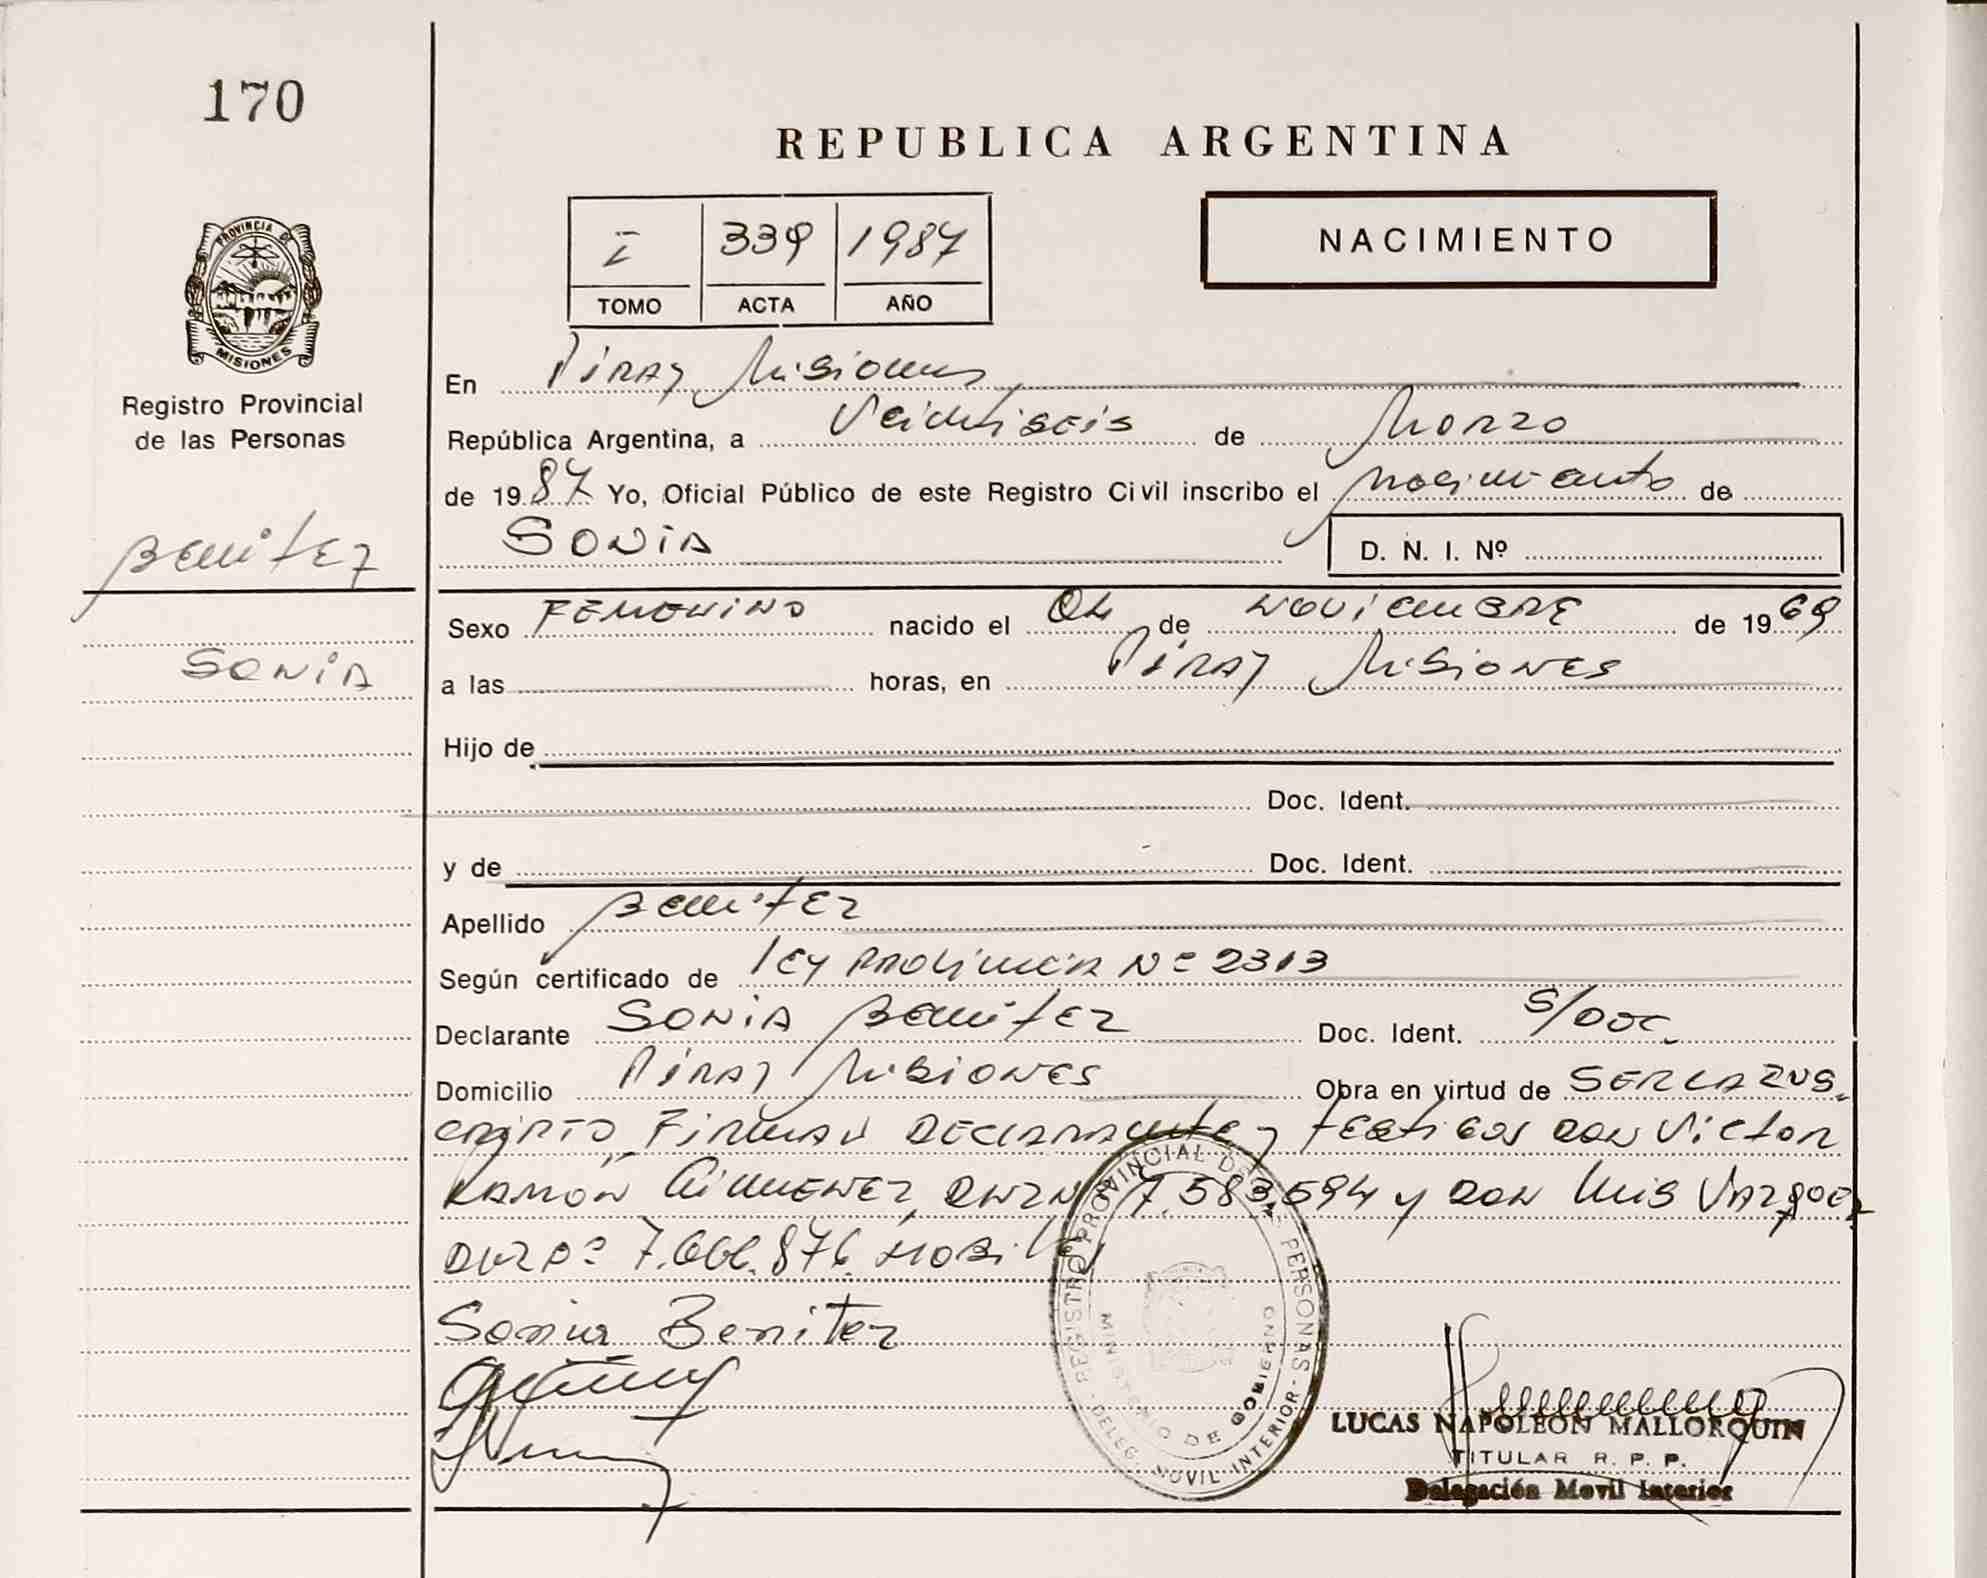 170
REPUBLICA ARGENTINA
I 339 1987
TOMO ACTA AÑO
NACIMIENTO
PROVINCIA DE
MISIONES
Registro Provincial
de las Personas
Benitez
Sonia
En Piray Misiones
República Argentina, a Veintiseis de Marzo
de 1987 Yo, Oficial Público de este Registro Civil inscribo el nacimiento de
Sonia D. N. I. Nº
Sexo Femenino nacido el 04 de noviembre de 1969
a las horas, en Piray Misiones
Hijo de
Doc. Ident.
y de Doc. Ident.
Apellido Benitez
Según certificado de ley Provincial Nº 2313
Declarante Sonia Benitez Doc. Ident. S/Doc.
Domicilio Piray Misiones Obra en virtud de ser la sus-
cripto, Firman declarante y testigos don Victor
Ramón Gimenez, DNI Nº 7.583.594 y don Luis Vazquez
DNI Nº 7.666.876
Sonia Benitez
REGISTRO PROVINCIAL DE LAS PERSONAS
MINISTERIO DE GOBIERNO
DELEG. MOVIL INTERIOR
LUCAS NAPOLEON MALLORQUIN
TITULAR R. P. P.
Delegación Movil Interior